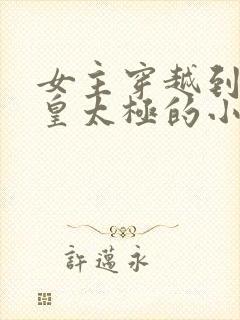 女主穿越到
皇太極的小
許邁永